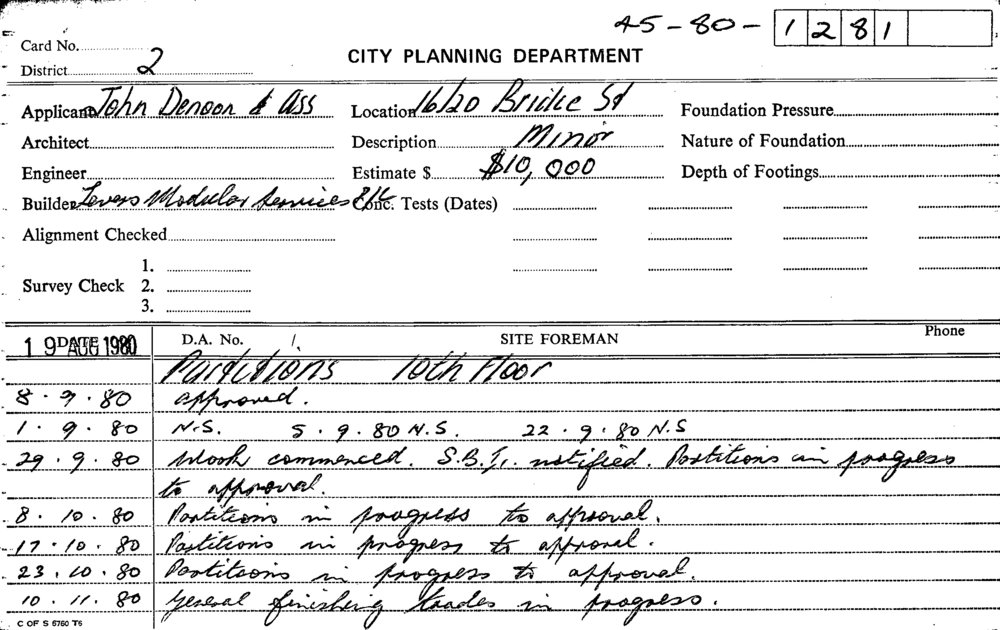 45-80-1281
Card No.
District 2
CITY PLANNING DEPARTMENT
Applicant John Denoon & Ass Location 16/20 Bridge St Foundation Pressure
Architect Description Minor Nature of Foundation
Engineer Estimate $ $10,000 Depth of Footings
Builder Levers Modular Services P/L Conc. Tests (Dates)
Alignment Checked
1.
Survey Check 2.
3.
19 AUG 1980 D.A. No. SITE FOREMAN Phone
Partitions 10th Floor
8.9.80 approved.
1.9.80 N.S. 5.9.80 N.S. 22.9.80 N.S
29.9.80 Work commenced. S.B.I. notified. Partitions in progress
to approval.
8.10.80 Partitions in progress to approval.
17.10.80 Partitions in progress to approval.
23.10.80 Partitions in progress to approval.
10.11.80 General finishing trades in progress.
C OF S 6760 T6